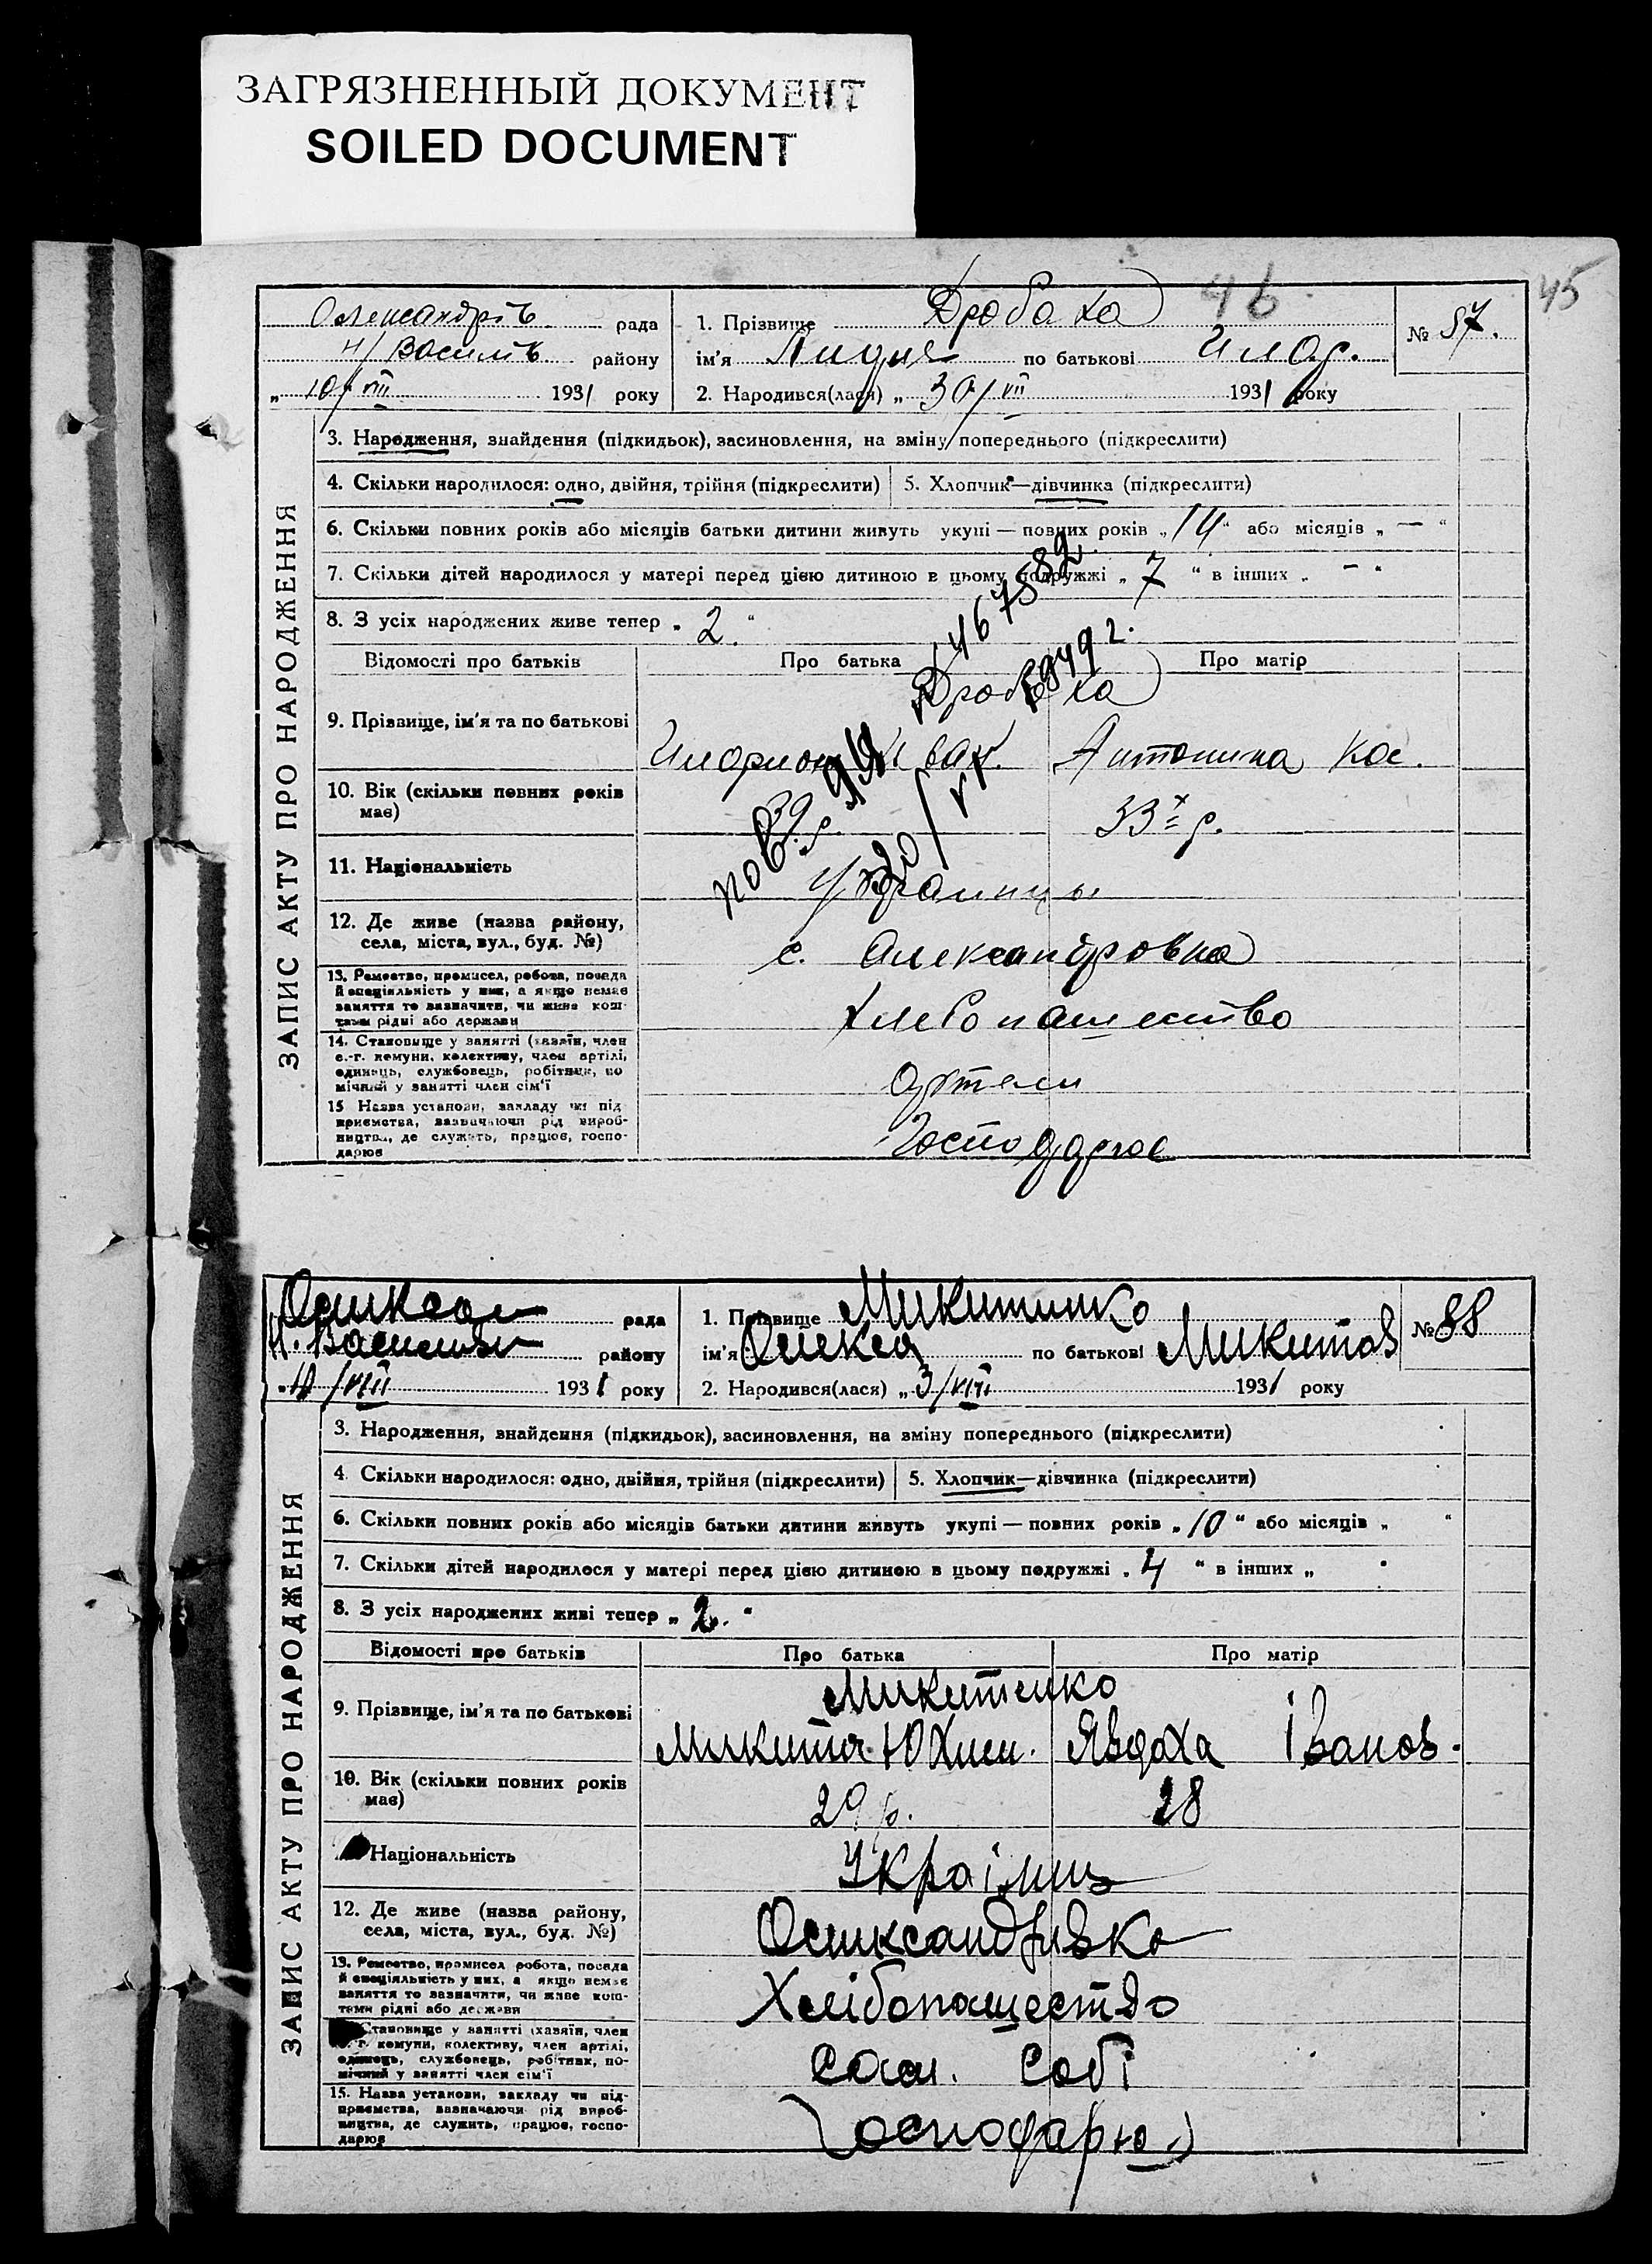 ЗАГРЯЗНЕННЫЙ ДОКУМЕНТ
SOILED DOCUMENT
45
46
Олександрів рада
Н/Василів району
„ 10/VIII 1931 року
1. Прізвище Дробаха
ім'я Лидия по батькові Илар.
2. Народився(лася) „ 30/VII 1931 року
№ 87.
ЗАПИС АКТУ ПРО НАРОДЖЕННЯ
3. Народження, знайдення (підкидьок), засиновлення, на зміну попереднього (підкреслити)
4. Скільки народилося: одно, двійня, трійня (підкреслити)
5. Хлопчик—дівчинка (підкреслити)
6. Скільки повних років або місяців батьки дитини живуть укупі — повних років „ 14 “ або місяців „ — “
7. Скільки дітей народилося у матері перед цією дитиною в цьому подружжі „ 7 “ в інших „ — “
8. З усіх народжених живе тепер „ 2. “
Відомості про батьків Про батька Про матір
9. Прізвище, ім'я та по батькові
Дробаха
Иларион Иван. Антонина
10. Вік (скільки повних років
має)
39 р. 33 р.
11. Національність
Украинцы
12. Де живе (назва району,
села, міста, вул., буд. №)
с. Александровка
13. Ремество, промисел, робота, посада
й спеціяльність у них, а якщо немає
заняття то зазначити, чи живе кош-
тами рідні або держави
Хлебопашество
14. Становище у занятті (хазяїн, член
с.-г. комуни, колективу, член артілі,
одинець, службовець, робітник, по
мічний у занятті член сім'ї
Артели
15 Назва установи, закладу чи під
приємства, зазначаючи рід вироб-
ництва, де служить, працює, госпо-
дарює
Господарює
1949 г.
рада
Н. Василів району
„ 10/VIII 1931 року
1. Прізвище Микитинко
ім'я Олекса по батькові Микитов
2. Народився(лася) „ 3/VIII 1931 року
№ 88
ЗАПИС АКТУ ПРО НАРОДЖЕННЯ
3. Народження, знайдення (підкидьок), засиновлення, на зміну попереднього (підкреслити)
4. Скільки народилося: одно, двійня, трійня (підкреслити)
5. Хлопчик—дівчинка (підкреслити)
6. Скільки повних років або місяців батьки дитини живуть укупі — повних років „ 10 “ або місяців „ “
7. Скільки дітей народилося у матері перед цією дитиною в цьому подружжі „ 4 “ в інших „
8. З усіх народжених живі тепер „ 2. “
Відомості про батьків Про батька Про матір
9. Прізвище, ім'я та по батькові
Микитенко
Микита Юхим. Явдоха Іванов.
10. Вік (скільки повних років
має)
29 р. 28
Національність
Українці
12. Де живе (назва району,
села, міста, вул., буд. №)
Олександрівка
13. Ремество, промисел робота, посада
й спеціяльність у них, а якщо немає
заняття то зазначити, чи живе кош-
тами рідні або держави
Хлібопашество
Становище у занятті (хазяїн, член
с.-г. комуни, колективу, член артілі,
одинець, службовець, робітник, по-
мічний у занятті член сім'ї
сам. собі
15. Назва установи, закладу чи під-
приємства, зазначаючи рід вироб-
ництва, де служить, працює, госпо-
дарює
господарює